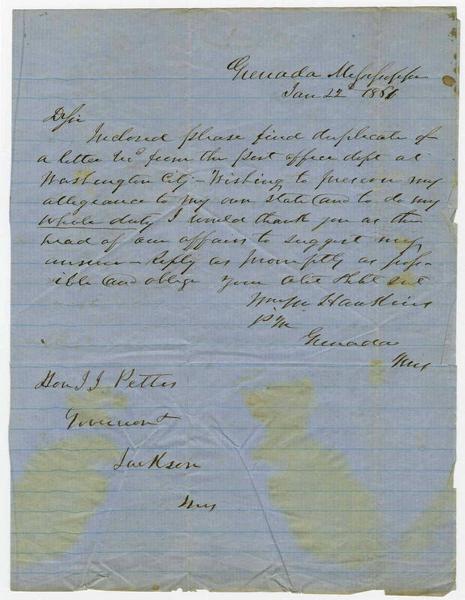 Grenada Mississippi
Jan 22d 1861
D Sir
Inclosed please find duplicate of
a letter rec'd from the post office dept at
Washington City – Wishing to preserve my
allegiance to my own state (and to do my
whole duty) I would thank you as the
head of our affairs to suggest my
answer – Reply as promptly as poss-
ible and oblige your obt Svt
Hawkins
P M
Grenada
Miss
Hon J J Pettus
Governor
Jackson
Miss